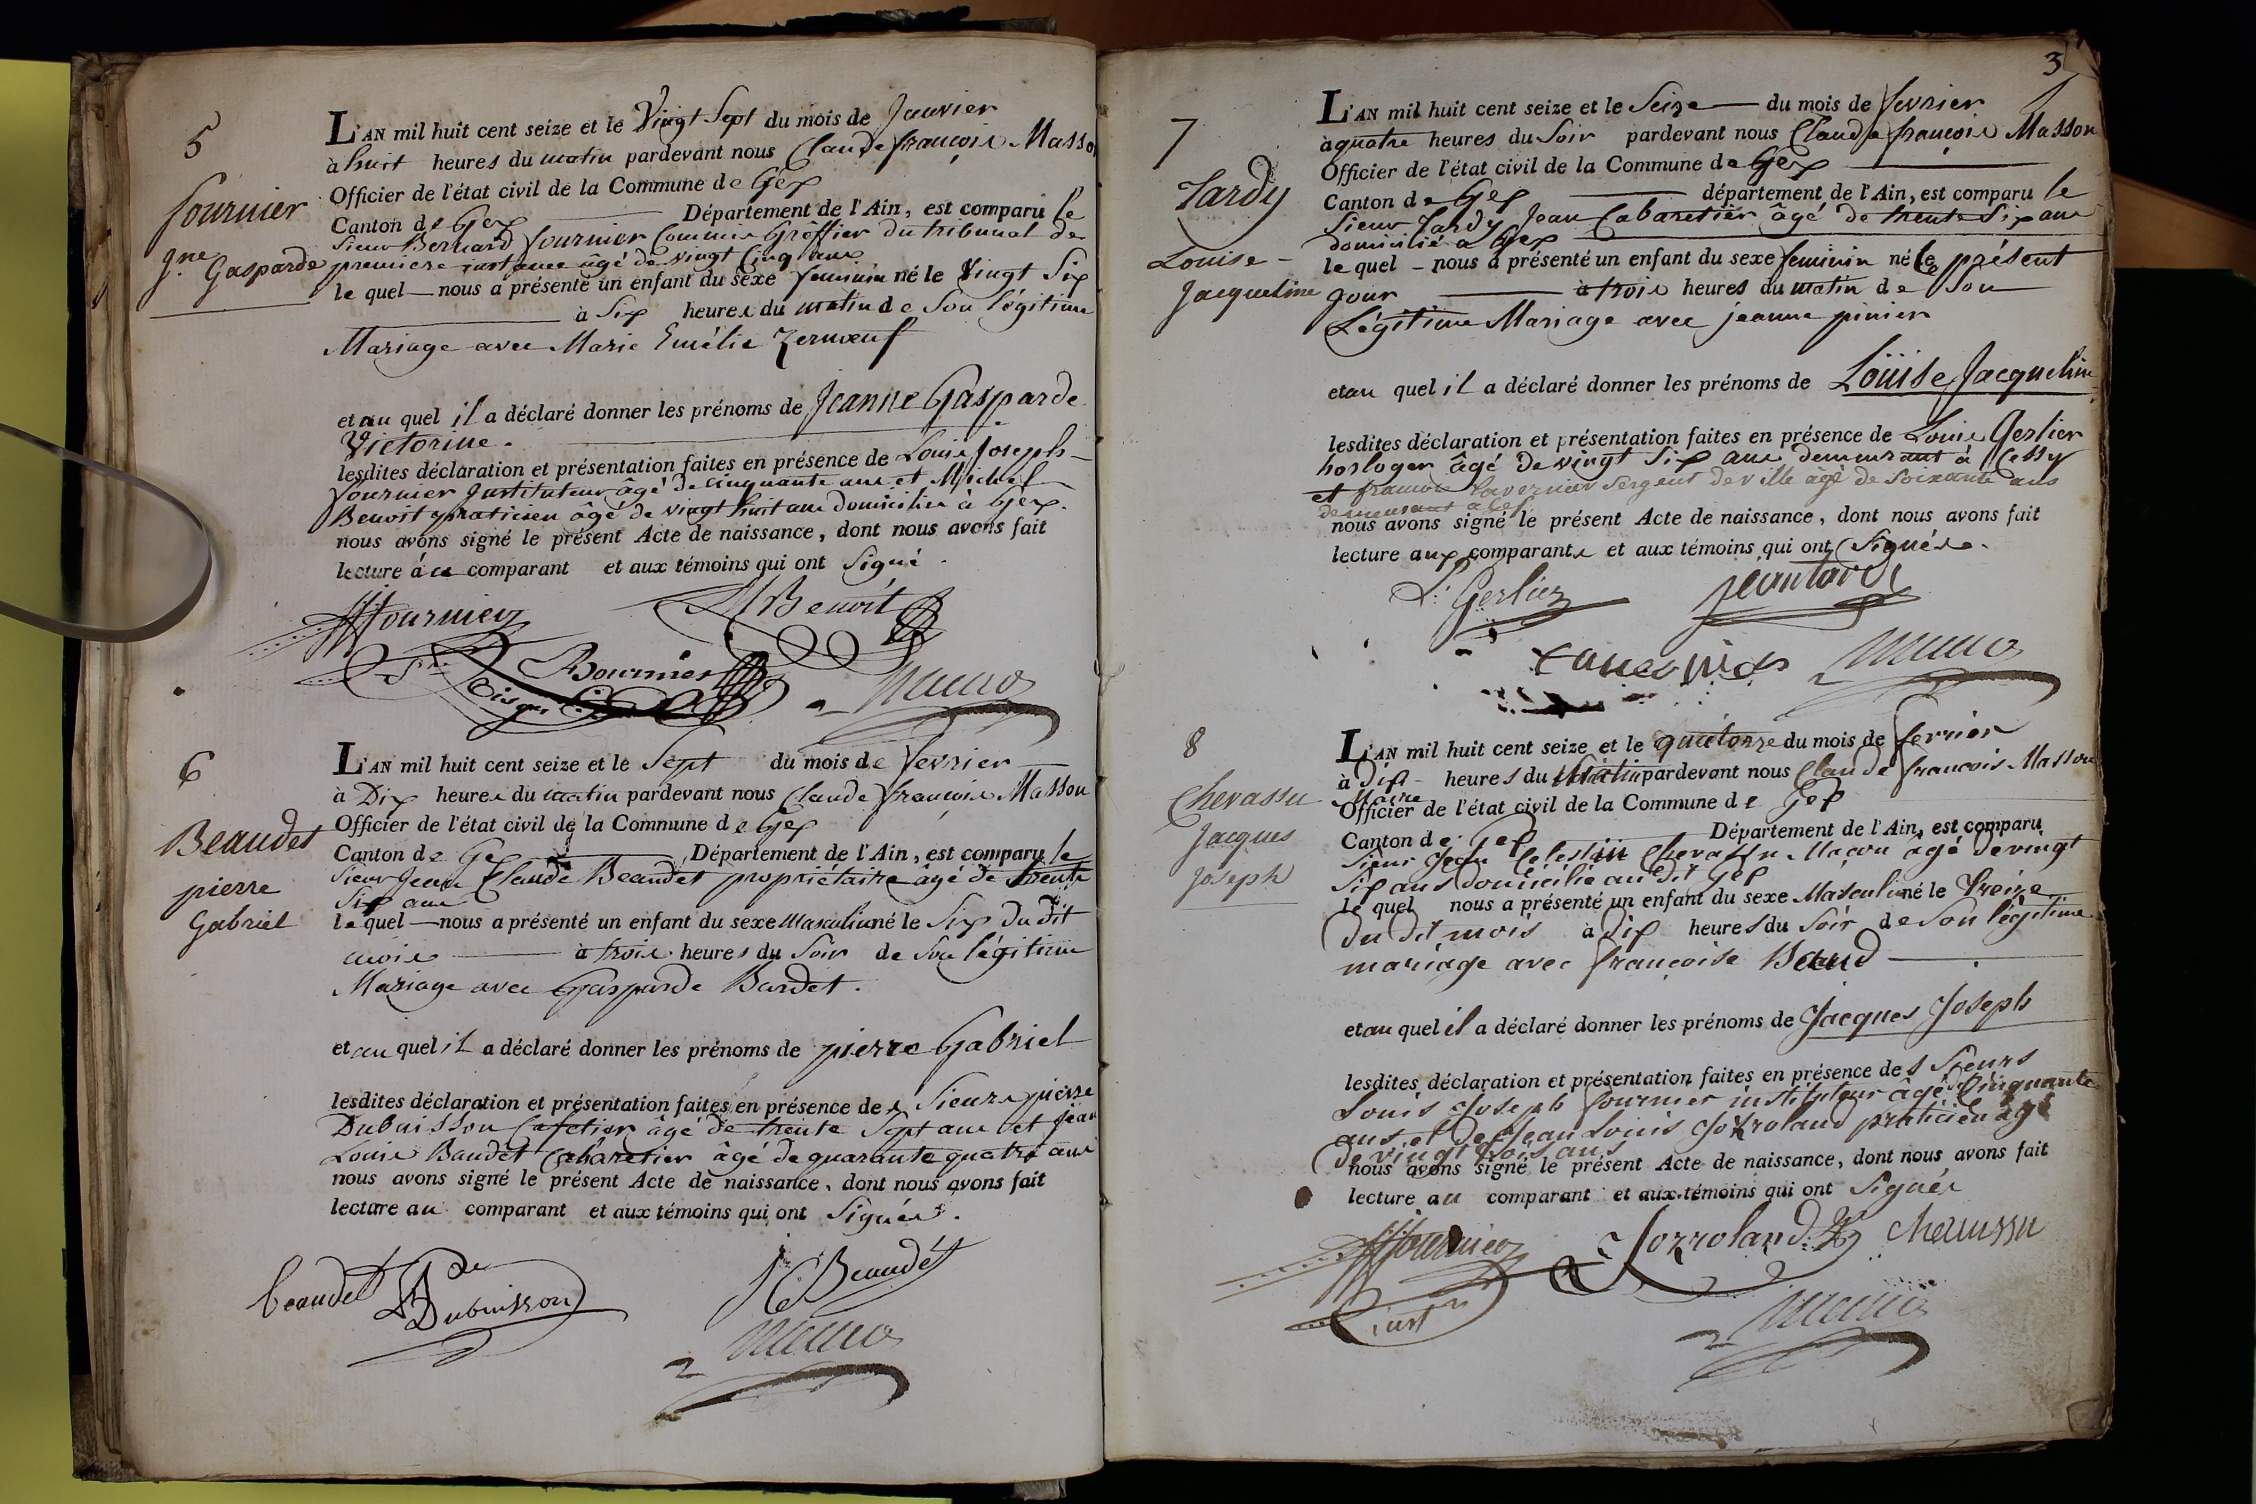 5
fournier
Jne Gasparde
L'AN mil huit cent seize et le Vingt Sept du mois de Janvier
à huit heures du matin pardevant nous Claude françois Masson
Officier de l'état civil de la Commune de Gex
Canton de Gex Département de l'Ain, est comparu le
Sieur Bernard fournier Commis Greffier du tribunal de
premiere instance âgé de vingt Cinq ans
le quel nous a présenté un enfant du sexe feminin né le Vingt Six
à Six heures du matin de Son légitime
Mariage avec Marie Emélie Zernœuf
et au quel il a déclaré donner les prénoms de Jeanne Gasparde
Victorine.
lesdites déclaration et présentation faites en présence de Louis Joseph
fournier Instituteur âgé de cinquante ans et Michel
Benoit praticien âgé de vingt huit ans domiciliés à Gex.
nous avons signé le présent Acte de naissance, dont nous avons fait
lecture à ce comparant et aux témoins qui ont Signé.
fournier
M Benoit
B fournier
6
Beaudet
pierre
Gabriel
L'AN mil huit cent seize et le Sept du mois de fevrier
à Dix heures du matin pardevant nous Claude françois Masson
Officier de l'état civil de la Commune de Gex
Canton de Gex Département de l'Ain, est comparu le
Sieur Jean Claude Beaudet propriétaire agé de trente
Six ans
le quel nous a présenté un enfant du sexe masculin né le Six du dit
mois à trois heures du Soir de Son légitime
Mariage avec Gasparde Bardet.
et au quel il a déclaré donner les prénoms de pierre Gabriel
lesdites déclaration et présentation faites en présence des Sieurs pierre
Dubuisson Cafetier âgé de trente Sept ans et Jean
Louis Baudet Cabaretier âgé de quarante quatre ans
nous avons signé le présent Acte de naissance, dont nous avons fait
lecture au comparant et aux témoins qui ont Signés.
beaudet
Dubuisson
JC Beaudet
3
7
Tardy
Louise
Jacqueline
L'AN mil huit cent seize et le Seize du mois de fevrier
à quatre heures du Soir pardevant nous Claude françois Masson
Officier de l'état civil de la Commune de Gex
Canton de Gex département de l'Ain, est comparu le
Sieur Tardy Jean Cabaretier âgé de trente Six ans
domicilié à Gex
le quel nous a présenté un enfant du sexe feminin né le présent
jour à trois heures du matin de Son
Légitime Mariage avec jeanne pinier
et au quel il a déclaré donner les prénoms de Louise Jacqueline
lesdites déclaration et présentation faites en présence de Louis Gerlier
horloger âgé de vingt Six ans demeurant à Cessy
et francois tavernier Sergent de ville âgé de soixante ans
demeurant à Gex
nous avons signé le présent Acte de naissance, dont nous avons fait
lecture aux comparants et aux témoins qui ont Signés.
L: Gerlier
jean tardi
8
Chevassu
Jacques
Joseph
L'AN mil huit cent seize et le quatorze du mois de fevrier
à Dix heures du Matin pardevant nous Claude francois Masson
Maire
Officier de l'état civil de la Commune de Gex
Canton de Gex Département de l'Ain, est comparu
Sieur Jean Celestin Chevassu Maçon agé de vingt
Six ans domicilié au dit Gex
le quel nous a présenté un enfant du sexe Masculin né le treize
du dit mois à dix heures du Soir de Son légitime
mariage avec françoise Baud
et au quel il a déclaré donner les prénoms de Jacques Joseph
lesdites déclaration et présentation faites en présence des Sieurs
Louis Joseph fournier instituteur âgé Cinquante
ans et de Jean Louis Jorroland praticien agé
de vingt trois ans
nous avons signé le présent Acte de naissance, dont nous avons fait
lecture au comparant et aux témoins qui ont Signés
fournier
Jorroland
Chevassu